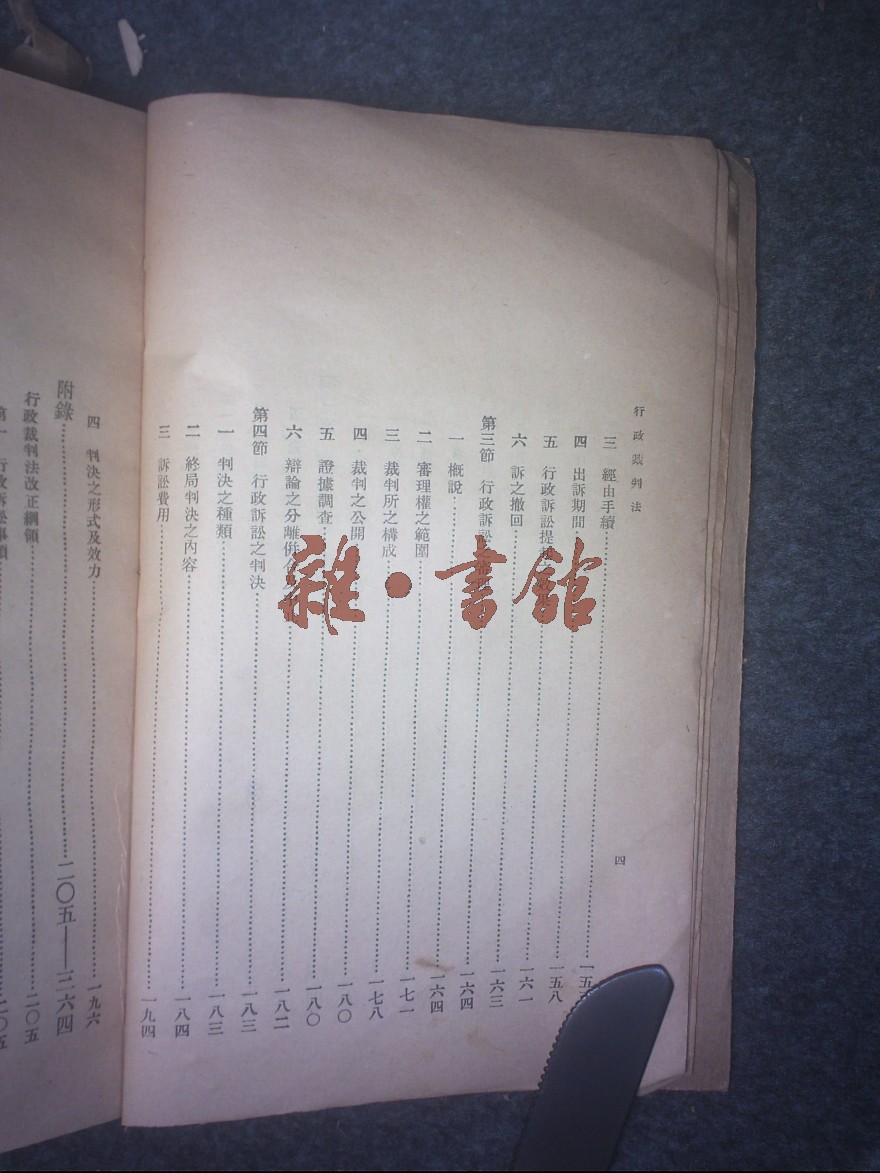 行政裁判法
四
三 經由手續……一五
四 出訴期間……一五八
五 行政訴訟提……一六一
六 訴之撤回……一六三
第三節 行政訴訟……一六四
一 概說……一六四
二 審理權之範圍……一七一
三 裁判所之構成……一七八
四 裁判之公開……一八〇
五 證據調查……一八〇
六 辯論之分離併合……一八二
第四節 行政訴訟之判決……一八三
一 判決之種類……一八三
二 終局判決之內容……一八四
三 訴訟費用……一九四
四 判決之形式及效力……一九六
附錄……二〇五——三六四
行政裁判法改正綱領……二〇五
第一 行政訴訟事項……二〇五
雜·書館